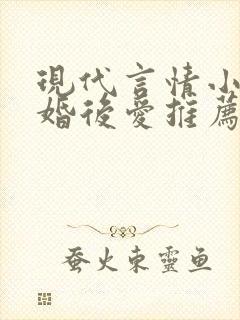 現代言情小
婚後愛推薦
蚕火東靈鱼